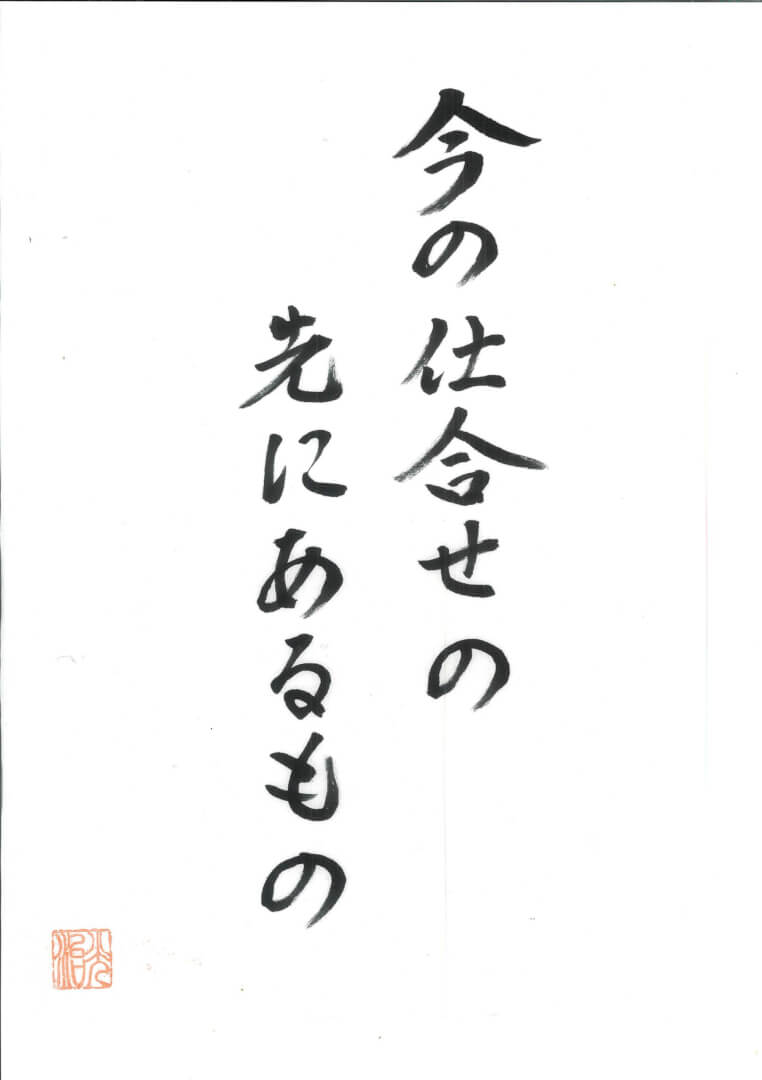 今の仕合せの
先にあるもの